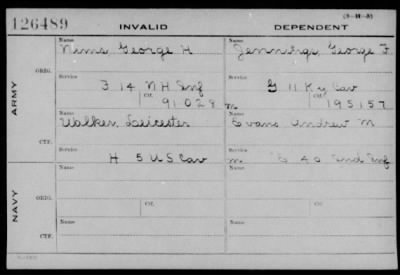 126489 INVALID DEPENDENT (3-H-3)
Name Name
Nims George H Jennings, George F
ORIG. Service Service
F 14 N H Inf G 11 Ky Cav
Ctf. Ctf.
91028 m 195157
ARMY
Name Name
Walker Leicester Evans Andrew M
CTF. Service Service
H 5 U S Cav m E 40 Ind Inf
Name Name
ORIG.
Service Ctf. Service Ctf.
NAVY
Name Name
CTF.
Service Service